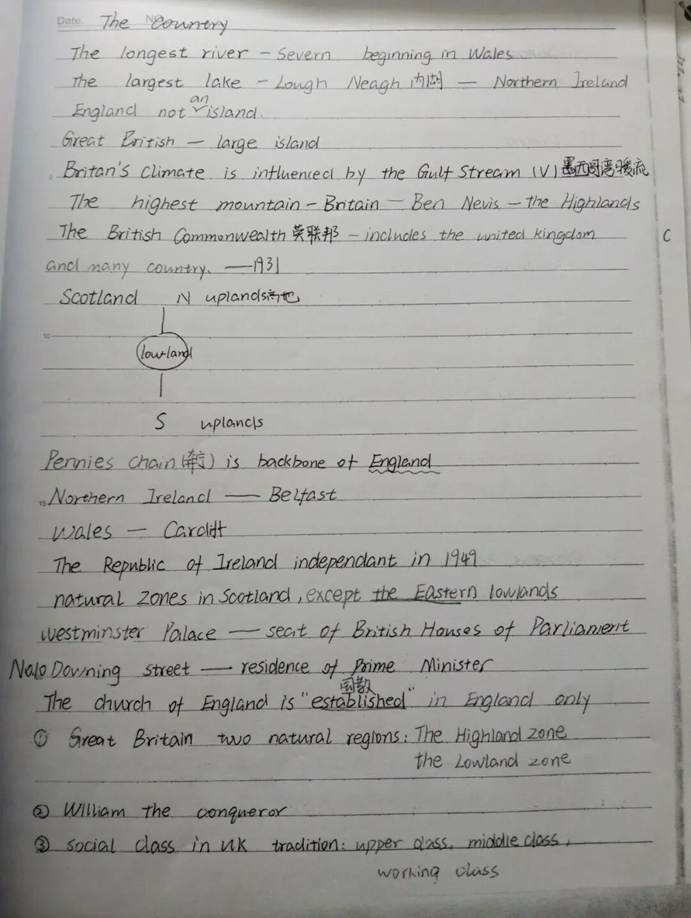 Date. No.
The Country
The longest river - Severn beginning in Wales
The largest lake - Lough Neagh 内湖 — Northern Ireland
England not an island.
Great British — large island
Britan's climate is influenced by the Gulf Stream (V) 墨西哥湾暖流
The highest mountain - Britain — Ben Nevis — the Highlands
The British Commonwealth 英联邦 - includes the united kingdom C
and many country. —1931
Scotland N uplands高地
lowland
S uplands
Pennies chain ( ) is backbone of England
Northern Ireland — Belfast
Wales — Cardiff
The Republic of Ireland independant in 1949
natural zones in Scotland, except the Eastern lowlands
Westminster Palace — seat of British Houses of Parliament
No10 Downing street — residence of Prime Minister
国教
The church of England is "established" in England only
① Great Britain two natural regions: The Highland zone
the Lowland zone
② William the conqueror
③ social class in UK tradition: upper class, middle class,
working class